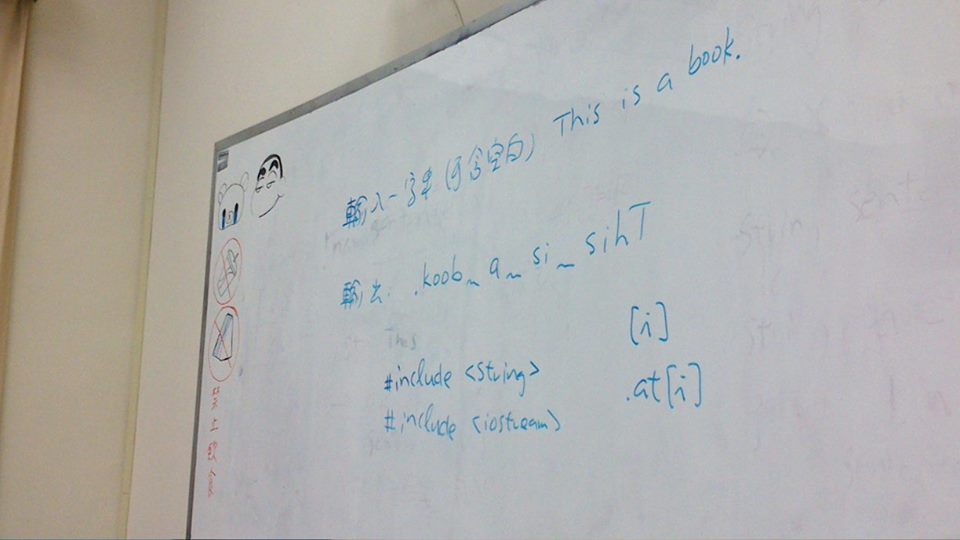 輸入一字串(可含空白) This is a book.
輸出: .koob_a_si_sihT
[i]
#include <string>
.at[i]
#include <iostream>
This